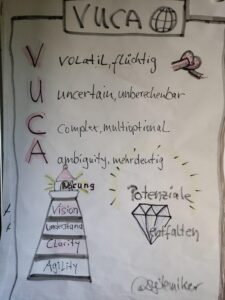 VUCA
V
volatil, flüchtig
U
uncertain, unberechenbar
C
complex, multioptional
A
ambiguity, mehrdeutig
Vision
Understand
Clarity
Agility
Potenziale
entfalten